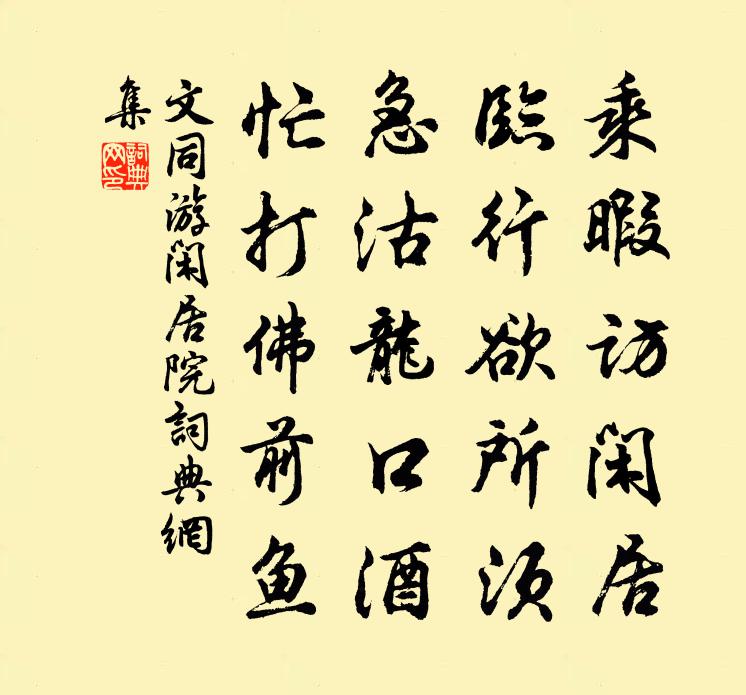 乘暇訪闲居
臨行欲所須
急沽龍口酒
忙打佛前鱼
文同游闲居院詞典網
集
詞典网印